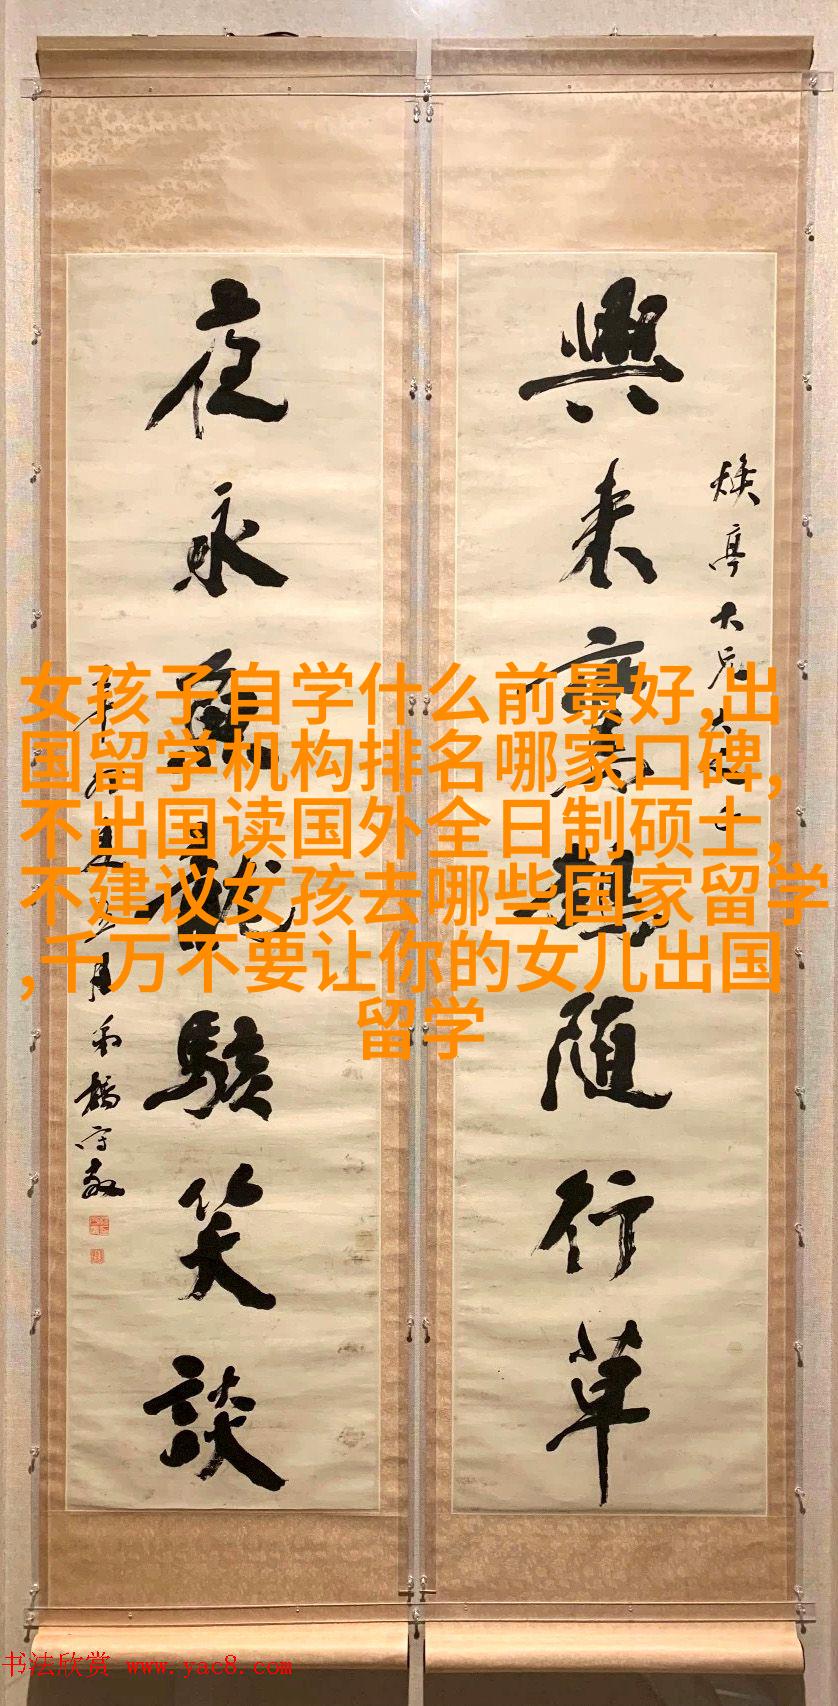 興来随行草
煥亭大兄
夜永駭笑談
楊守敬
女孩子自学什么前景好,出
国留学机构排名哪家口碑,
不出国读国外全日制硕士,
不建议女孩去哪些国家留学
,千万不要让你的女儿出国
留学
书法欣赏 www.yac8.com